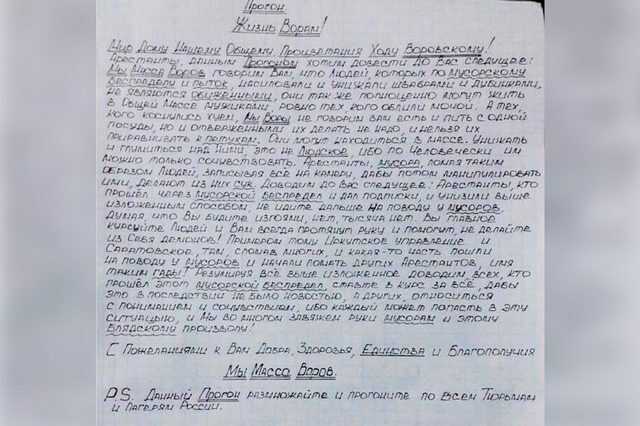 Прогон
Жизнь Ворам!
Мир Дому Нашему Общему, Процветания Ходу Воровскому!
Арестанты, данным Прогоном хотим довести до Вас следущее:
Мы Масса Воров говорим Вам, что людей, которых по мусорскому
беспределу и пыток, насиловали и унижали швабрами и дубинками,
не являются обиженными, они так же полноценно могут жить
в общей массе мужиками, ровно тех кого облили мочой. А тех,
кого коснулись хуем, Мы Воры не говорим вам есть и пить с одной
посуды, но и отвержеными их делать не надо, и нельзя их
приравнивать к петухам. Они могут находиться в массе. Унижать
и глумиться над ними, это не Людское, ибо по человечески им
можно только сочувствовать. Арестанты, мусора, ломая таким
образом людей, записывая всё на камеры, дабы потом манипулировать
ими, делают из них сук. Доводим до Вас следущее: Арестанты, кто
прошёл через мусорской беспредел и дал подписки, и унизили выше
изложенным способом, не идите дальше на поводу у мусоров,
думая, что вы будите изгоями, нет, тысяча нет. Вы главное
курсуйте людей и Вам всегда протянут руку и помогут, не делайте
из себя демонов! Примером тому Иркутское управление и
Саратовское, там, сломав многих, и какая-то часть пошли
на поводу у мусоров и начали ломать других Арестантов, имя
таким гады! Резумируя всё выше изложенное доводим всех, кто
прошёл этот мусорской беспредел, ставте в курс за всё, дабы
это в последствии не было новостью, а других, относиться
с пониманием и сочувствием, ибо каждый может попасть в эту
ситуацию, и Мы во многом завяжем руки мусорам и этому
блядскому произволу!
С Пожеланиями к Вам Добра, Здоровья, Единства и Благополучия
Мы Масса Воров.
P.S. Данный Прогон размножайте и прогоните по всем Тюрьмам
и лагерям России.